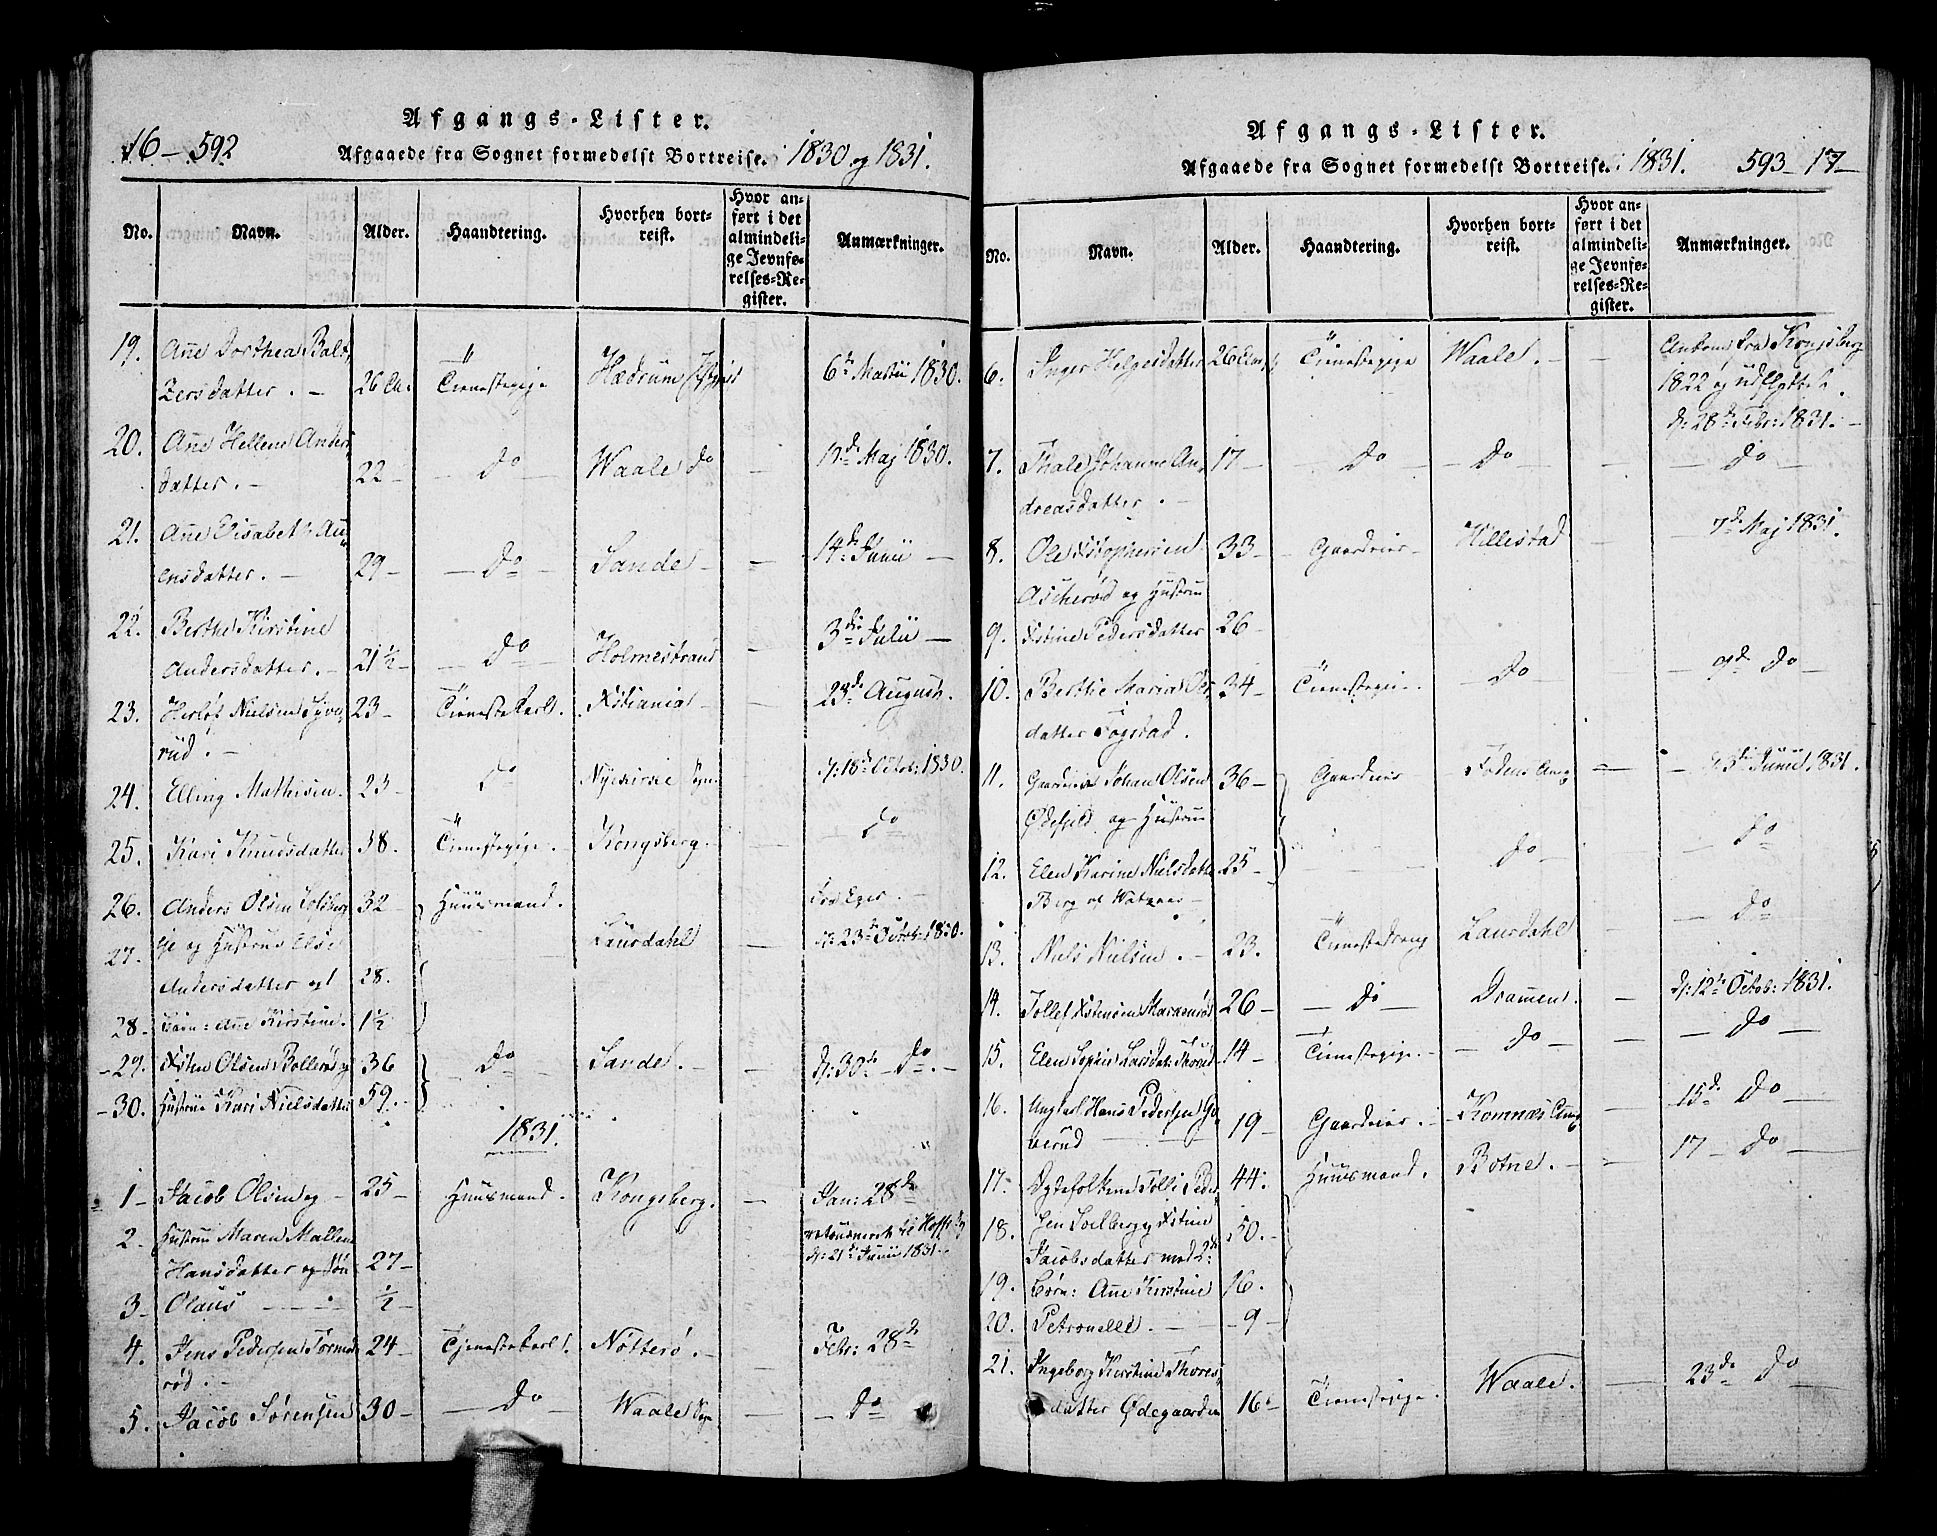 Afgangs-Lister.
16 – 592
Afgaaede fra Sognet formedelst Bortreise. 1830 og 1831.
No. Navn. Alder. Haandtering. Hvorhen bortreist. Hvor anført i det almindelige Jevnførelses-Register. Anmærkninger.
19. Ane Dorthea Balt
zersdatter. – 26 Tienestepige Hædrum 6te Martii 1830.
20. Ane Hellene Anders
datter. – 22 – Do – Waale Do – 12de Maj 1830.
21. Ane Elisabeth Au
ensdatter. – 29 – – Do – Sande – – 14de Junii –
22. Berthe Kirstine
Andersdatter. – 21 ½ – – Do – Holmestrand – 3die Julii –
23. Herlof Nielsen Syve
rud. – 23 – Tienestekarl. Xstiania – – 23de August.
24. Elling Mathisen. 23 – Do Nyekirke d: 18de Octob: 1830.
25. Kari Knudsdatter 38. Tienestepige. Kongsberg. – Do
26. Anders Olsen 32 – Huusmand. Fra Eger. –
27. og Hustrue Else Laurdahl – d: 23de Octob: 1830.
Andersdatter og 1 28.
28. Barn: Ane Kirstine. 1 ½
29. Xsten Olsen Bollerød og 36 Do Sande. – – d: 30te – Do. –
30. Hustrue Kari Nielsdatter 59. –
1831.
1 – Jacob Olsen og – 25 – Huusmand. Kongsberg. – Jan: 28de
2. Hustrue Maren Mallene
Hansdatter og Søn 27 – d: 21de Junii 1831.
3 – Olaus – – – ½ –
4. Jens Pedersen Tormod
rød. – 24 – Tjenestekarl. Nøtterø. – – Febr: 28de
5. Jacob Sørensen 30 – – Do Waale – – Do –
Afgangs-Lister.
Afgaaede fra Sognet formedelst Bortreise. 1831. 593 – 17 –
No. Navn. Alder. Haandtering. Hvorhen bortreist. Hvor anført i det almindelige Jevnførelses-Register. Anmærkninger.
6. Inger Helgesdatter 26 Tienestepige Waale. – – Ankom fra Kongsberg
1822 og udflyttet
d: 28de Febr: 1831. –
7. Thale Johanne An
dreasdatter. – 17 – – Do – – Do – – – Do –
8. Ole Xstophersen 33 – – Gaardeier – Hillestad – 7de Maj 1831.
Ascherød og Hustrue
9. Xstine Pedersdatter 26 –
10. Berthe Maria Ols 34 – Tienestepige. – Do – – 9de Do –
datter Fogstad.
11. Gaardeier Johan Olsen 36 – Gaardeier – Fodens Ang – Junii 1831.
Ødefjeld og Hustrue
12. Elen Karine Nielsdatter 25 – Do – – Do
Berg
13. Niels Nielsen. – 23. Tienestedreng Laurdahl – Do –
14. Tollef Xstensen 26 – – Do – Dramen. – d: 12te Octob: 1831.
15. Elen Sophie Larsdat: 14 – Tienestepige. – – Do – – – Do –
16. Ungkarl Hans Pedersen
19 – Gaardeier. – Komnæs Ang – 15de Do –
17. Tolli Peder 44. Huusmand. Botne. – – 17 – Do –
18. sen Solberg og Xstine 50. –
Jacobsdatter med 2de
19. Børn: Ane Kirstine 16.
20. Petronelle. – – 9 –
21. Ingeborg Kirstine Thores
datter Ødegaarden 16 Tienestepige. Waale. – 23de Do –